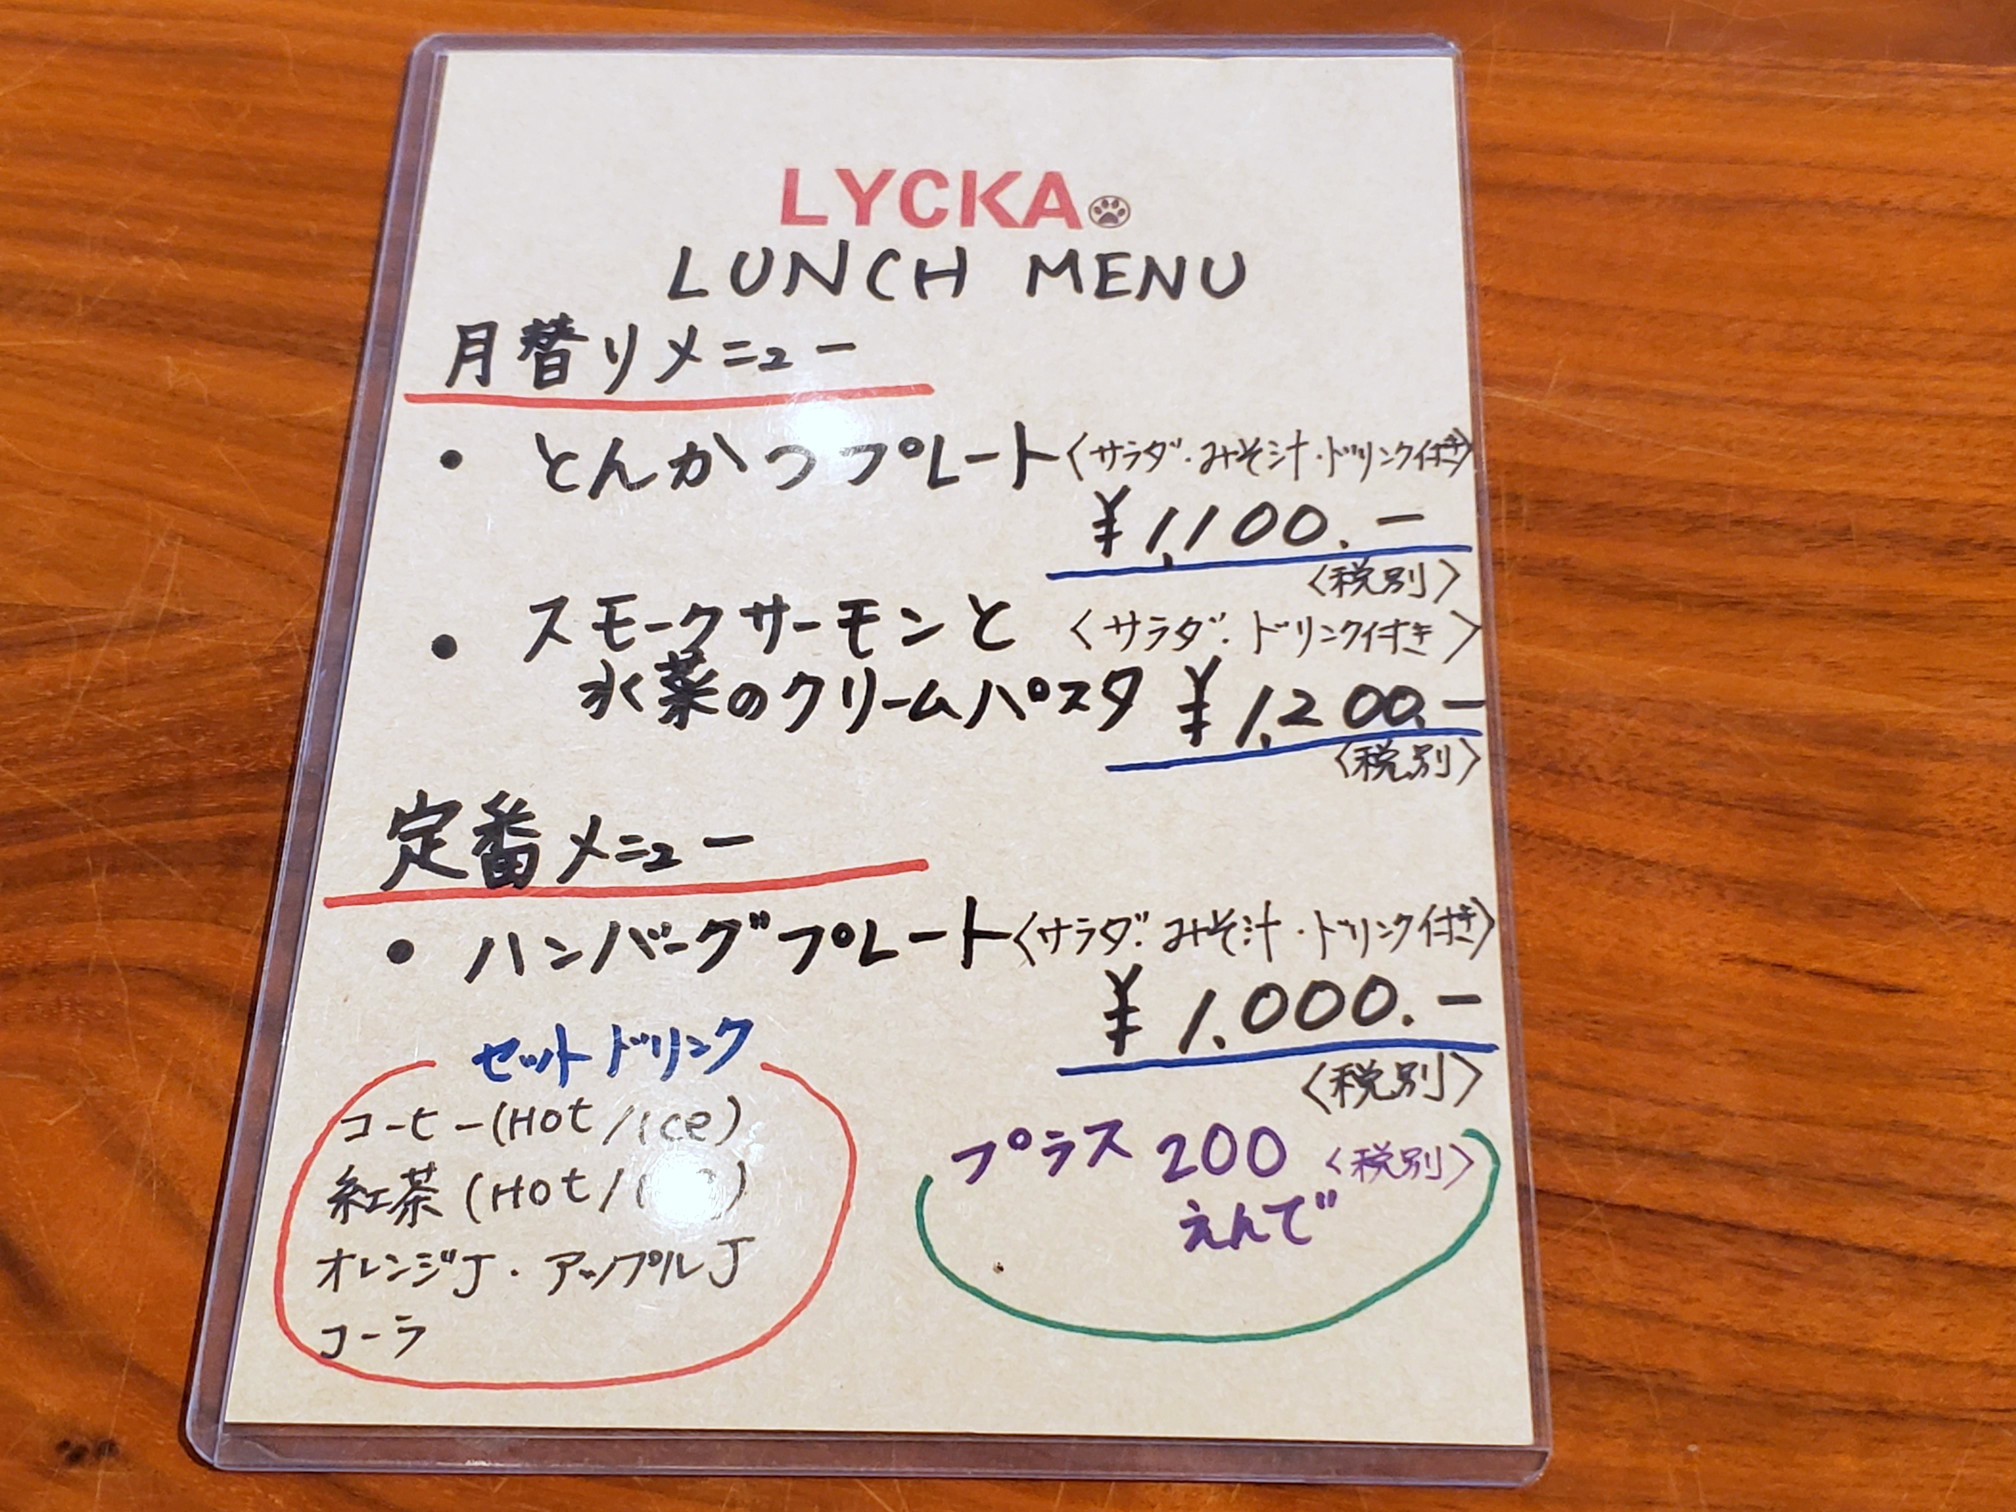 LYCKA
LUNCH MENU
月替りメニュー
・とんかつプレート〈サラダ・みそ汁・ドリンク付き〉
¥1,100.-
〈税別〉
・スモークサーモンと〈サラダ・ドリンク付き〉
水菜のクリームパスタ ¥1,200.-
〈税別〉
定番メニュー
・ハンバーグプレート〈サラダ・みそ汁・ドリンク付き〉
¥1,000.-
〈税別〉
セットドリンク
コーヒー(Hot/Ice)
紅茶(Hot/
オレンジJ・アップルJ
コーラ
プラス200〈税別〉
えんで